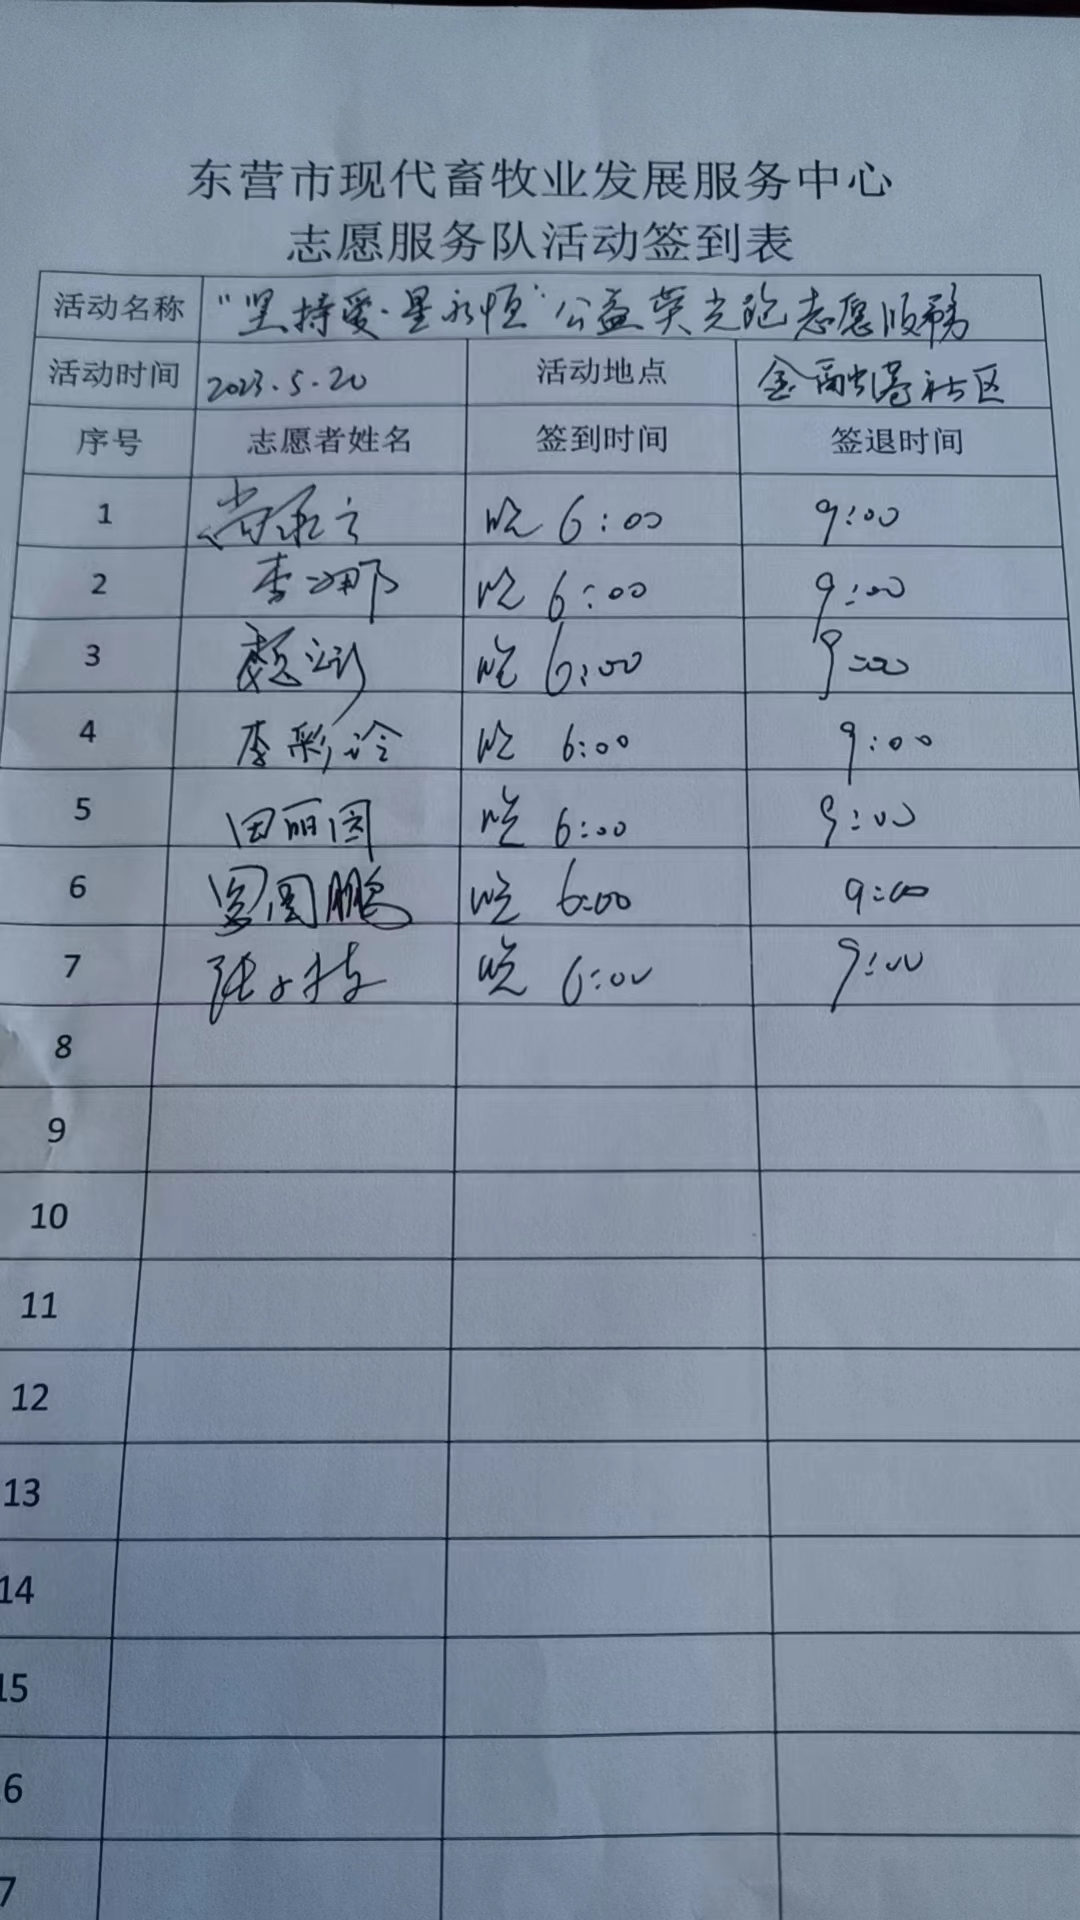 东营市现代畜牧业发展服务中心
志愿服务队活动签到表
活动名称 “坚持爱·星永恒”公益荧光跑志愿服务
活动时间 2023.5.20 活动地点 金融港社区
序号 志愿者姓名 签到时间 签退时间
1 晚 6:00 9:00
2 李娜 晚 6:00 9:00
3 晚 6:00 9:00
4 李彩玲 晚 6:00 9:00
5 田丽图 晚 6:00 9:00
6 国鹏 晚 6:00 9:00
7 张 晚 6:00 9:00
8
9
10
11
12
13
14
15
6
7